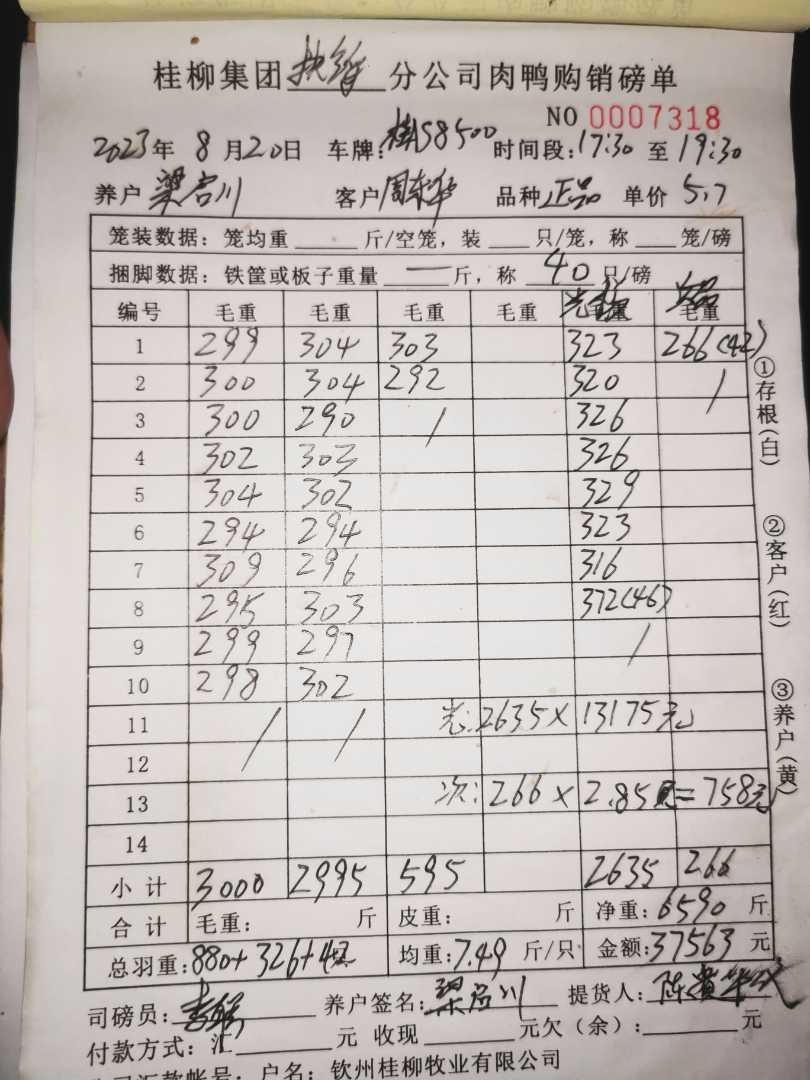 桂柳集团 分公司肉鸭购销磅单
NO 0007318
2023年 8月20日 车牌:桂S8500 时间段:17:30 至 19:30
养户 梁启川 客户 周东华 品种 正品 单价 5.7
笼装数据：笼均重 斤/空笼，装 只/笼，称 笼/磅
捆脚数据：铁筐或板子重量 一 斤，称 40 只/磅
编号 毛重 毛重 毛重 毛重 毛重
1 299 304 303 323 266(42)
2 300 304 292 320 /
3 300 290 / 326
4 302 303 326
5 304 302 329
6 294 294 323
7 309 296 316
8 295 303 372(46)
9 299 297 /
10 298 302
11 / / 光:2635× 13175元
12
13 次:266× 2.85 =758元
14
小计 3000 2995 595 2635 266
合计 毛重: 斤 皮重: 斤 净重:6590 斤
总羽重:880+326+42 均重:7.49 斤/只 金额:37563 元
司磅员: 养户签名:梁启川 提货人:
付款方式：汇 元 收现 元欠（余）: 元
户名：钦州桂柳牧业有限公司
①存根(白)
②客户(红)
③养户(黄)